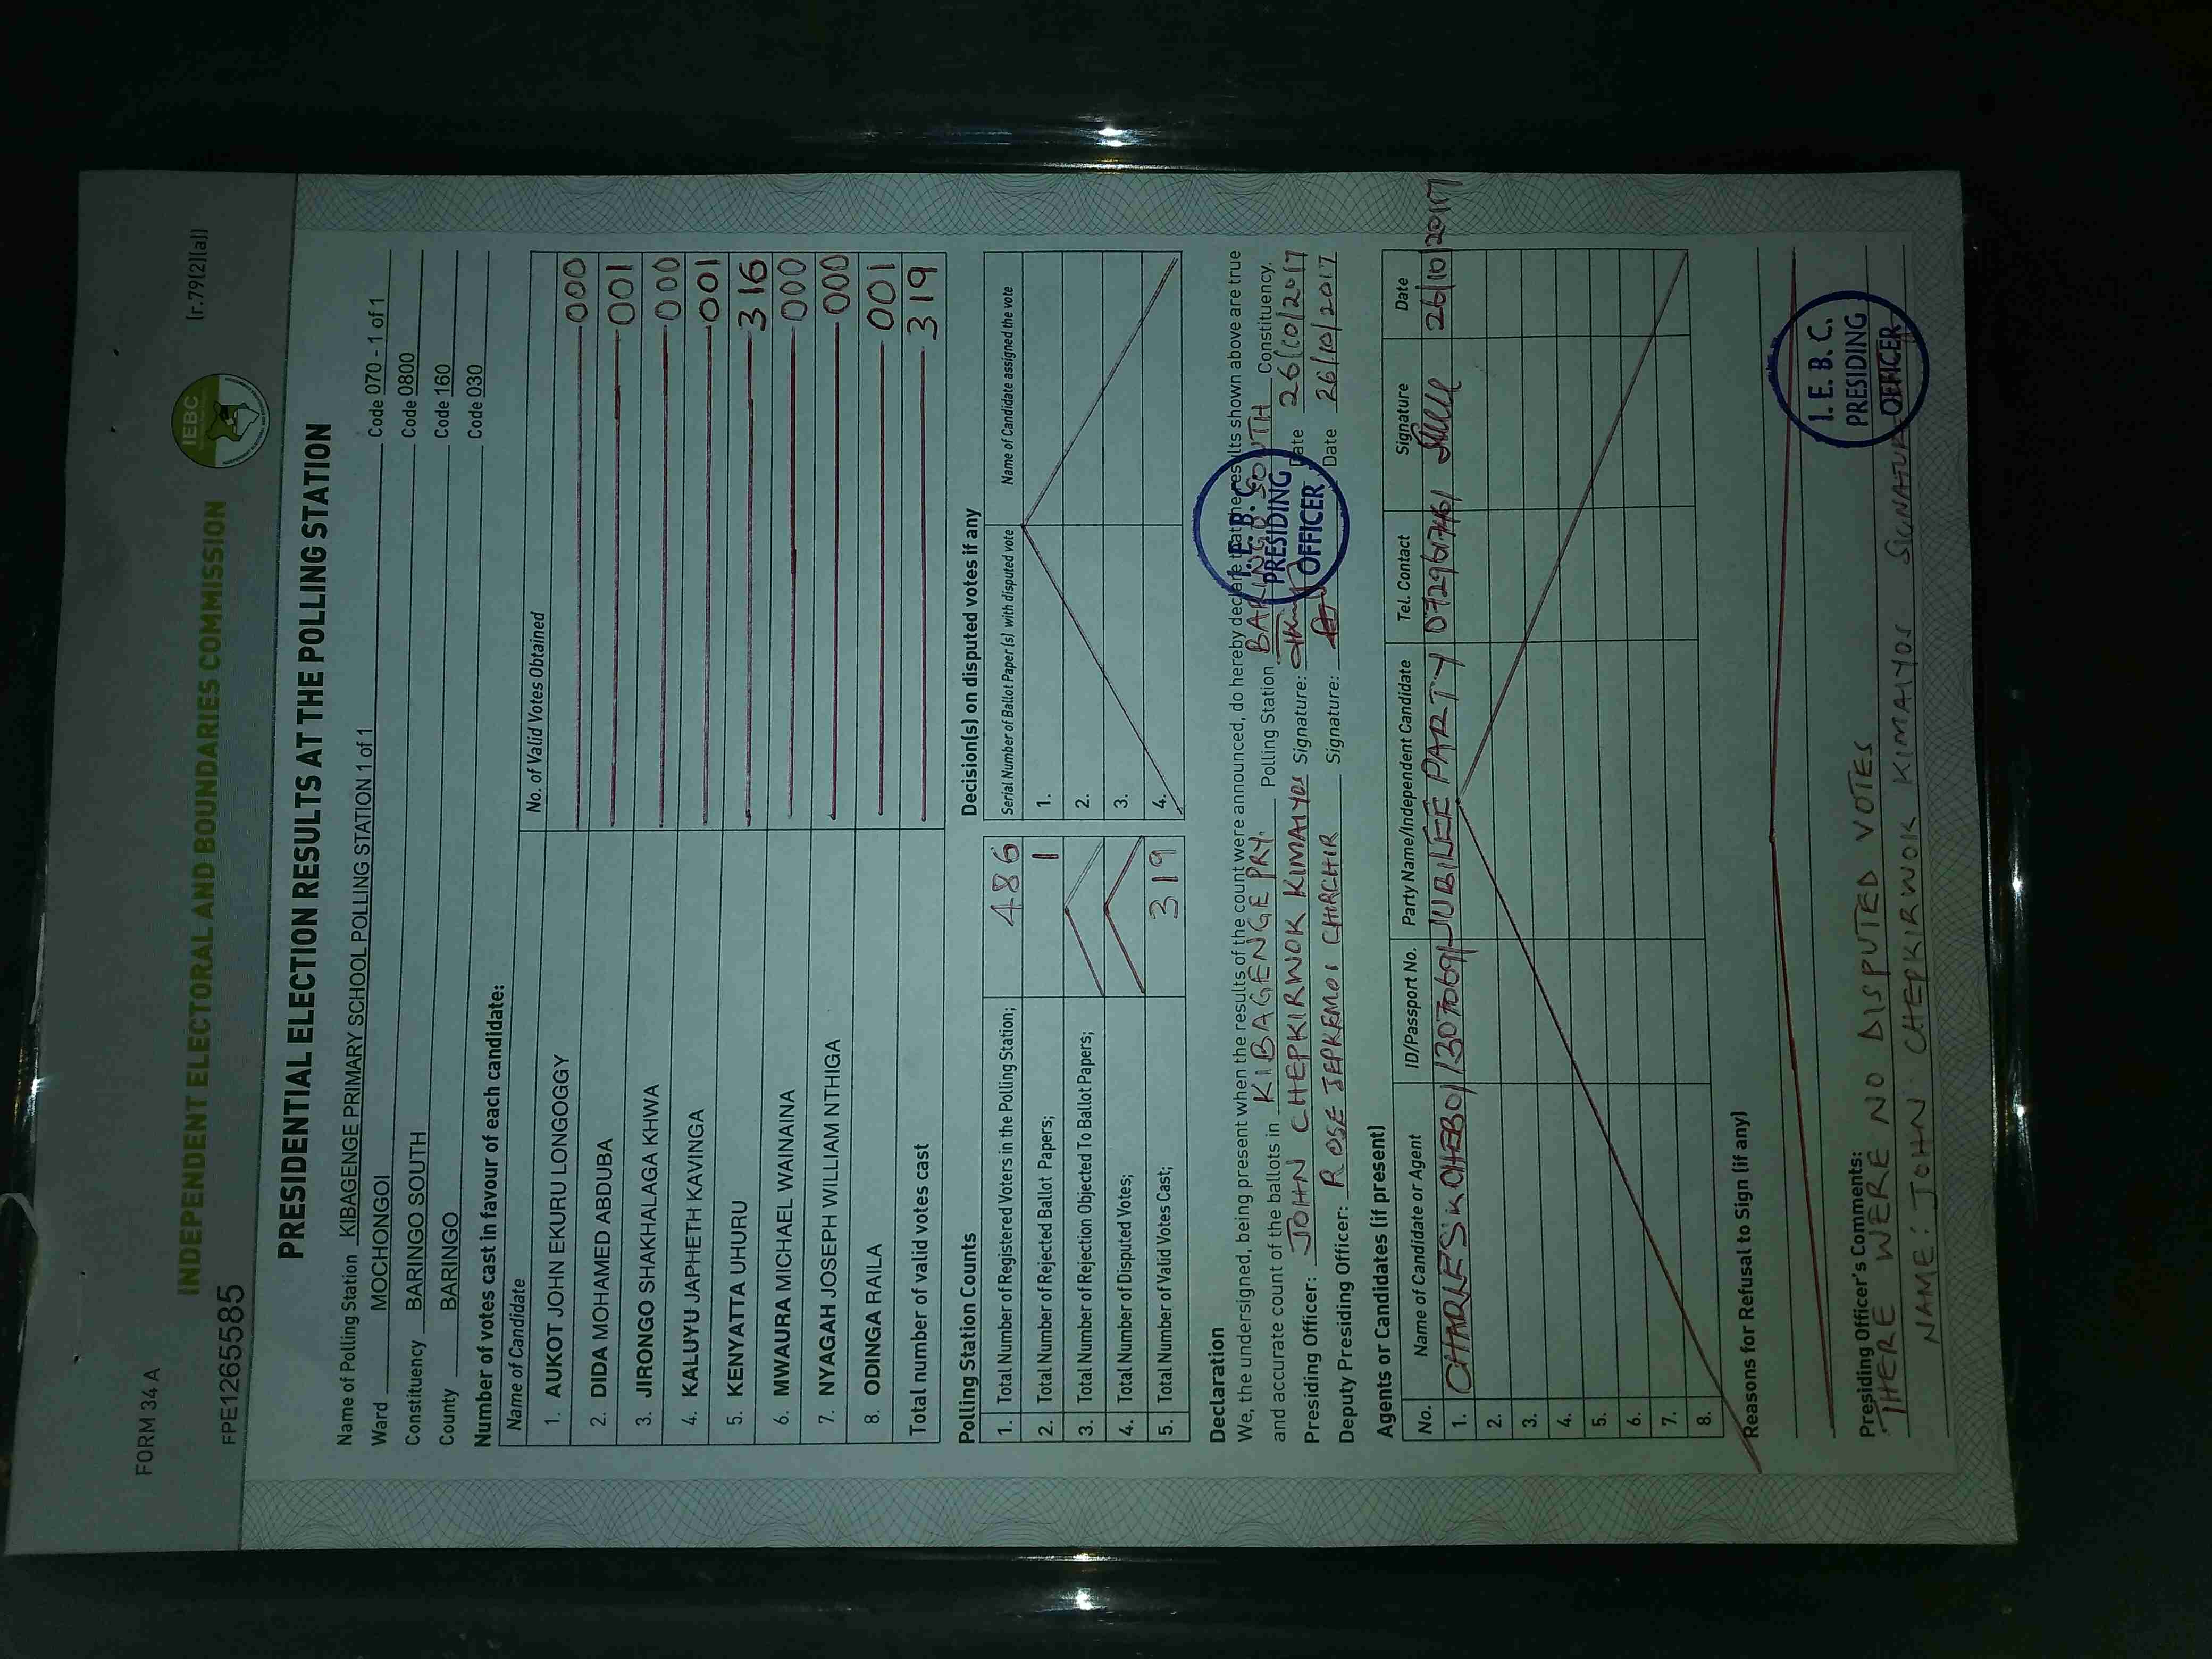 FORM 34 A
(r.79(2)(a))
IEBC
INDEPENDENT ELECTORAL AND BOUNDARIES COMMISSION
FPE1265585
PRESIDENTIAL ELECTION RESULTS AT THE POLLING STATION
Name of Polling Station KIBAGENGE PRIMARY SCHOOL POLLING STATION 1 of 1 Code 070 - 1 of 1
Ward MOCHONGOI Code 0800
Constituency BARINGO SOUTH Code 160
County BARINGO Code 030
Number of votes cast in favour of each candidate:
Name of Candidate No. of Valid Votes Obtained
1. AUKOT JOHN EKURU LONGOGGY 000
2. DIDA MOHAMED ABDUBA 001
3. JIRONGO SHAKHALAGA KHWA 000
4. KALUYU JAPHETH KAVINGA 001
5. KENYATTA UHURU 316
6. MWAURA MICHAEL WAINAINA 000
7. NYAGAH JOSEPH WILLIAM NTHIGA 000
8. ODINGA RAILA 001
Total number of valid votes cast 319
Polling Station Counts
1. Total Number of Registered Voters in the Polling Station; 486
2. Total Number of Rejected Ballot Papers; 1
3. Total Number of Rejection Objected To Ballot Papers;
4. Total Number of Disputed Votes;
5. Total Number of Valid Votes Cast; 319
Decision(s) on disputed votes if any
Serial Number of Ballot Paper (s) with disputed vote Name of Candidate assigned the vote
1.
2.
3.
4.
Declaration
We, the undersigned, being present when the results of the count were announced, do hereby declare that the results shown above are true
and accurate count of the ballots in KIBAGENGE PRY. Polling Station BARINGO SOUTH Constituency.
Presiding Officer: JOHN CHEPKIRWOK KIMAIYOI Signature: Date 26/10/2017
Deputy Presiding Officer: ROSE JEPKEMOI CHIRCHIR Signature: Date 26/10/2017
I.E.B.C.
PRESIDING
OFFICER
Agents or Candidates (if present)
No. Name of Candidate or Agent ID/Passport No. Party Name/Independent Candidate Tel. Contact Signature Date
1. CHARLES JUBILEE PARTY 26/10/2017
2.
3.
4.
5.
6.
7.
8.
Reasons for Refusal to Sign (if any)
Presiding Officer's Comments:
THERE WERE NO DISPUTED VOTES
NAME: JOHN CHEPKIRWOK KIMAIYOI SIGNATURE
I.E.B.C.
PRESIDING
OFFICER